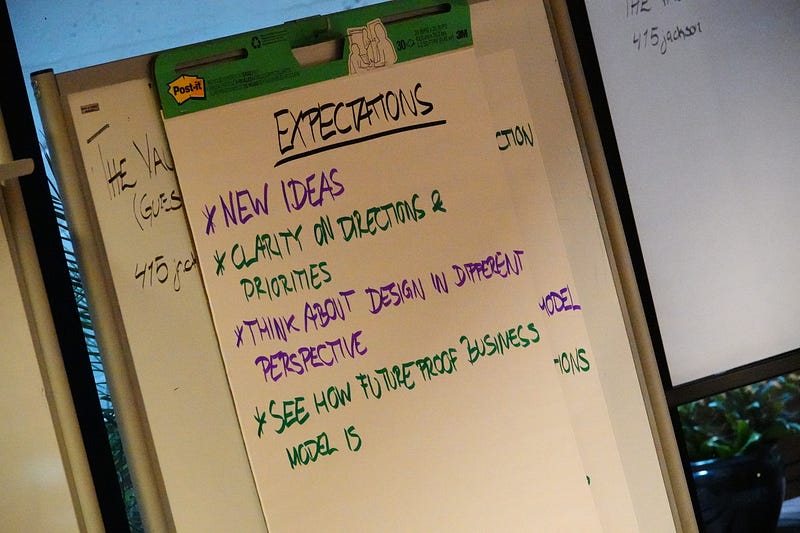 Post-it
30
3M
EXPECTATIONS
* NEW IDEAS
* CLARITY ON DIRECTIONS &
PRIORITIES
* THINK ABOUT DESIGN IN DIFFERENT
PERSPECTIVE
* SEE HOW FUTURE PROOF BUSINESS
MODEL IS
CTION
MODEL
IONS
THE VAU
(GUES
415 jack
THE
415 jackson